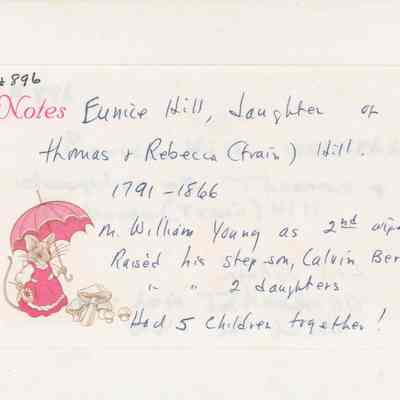 #896
Notes Eunice Hill, daughter of
Thomas & Rebecca (Train) Hill.
1791-1866
m. William Young as 2nd wife
Raised his step son, Calvin Ber
" " 2 daughters
Had 5 children together!